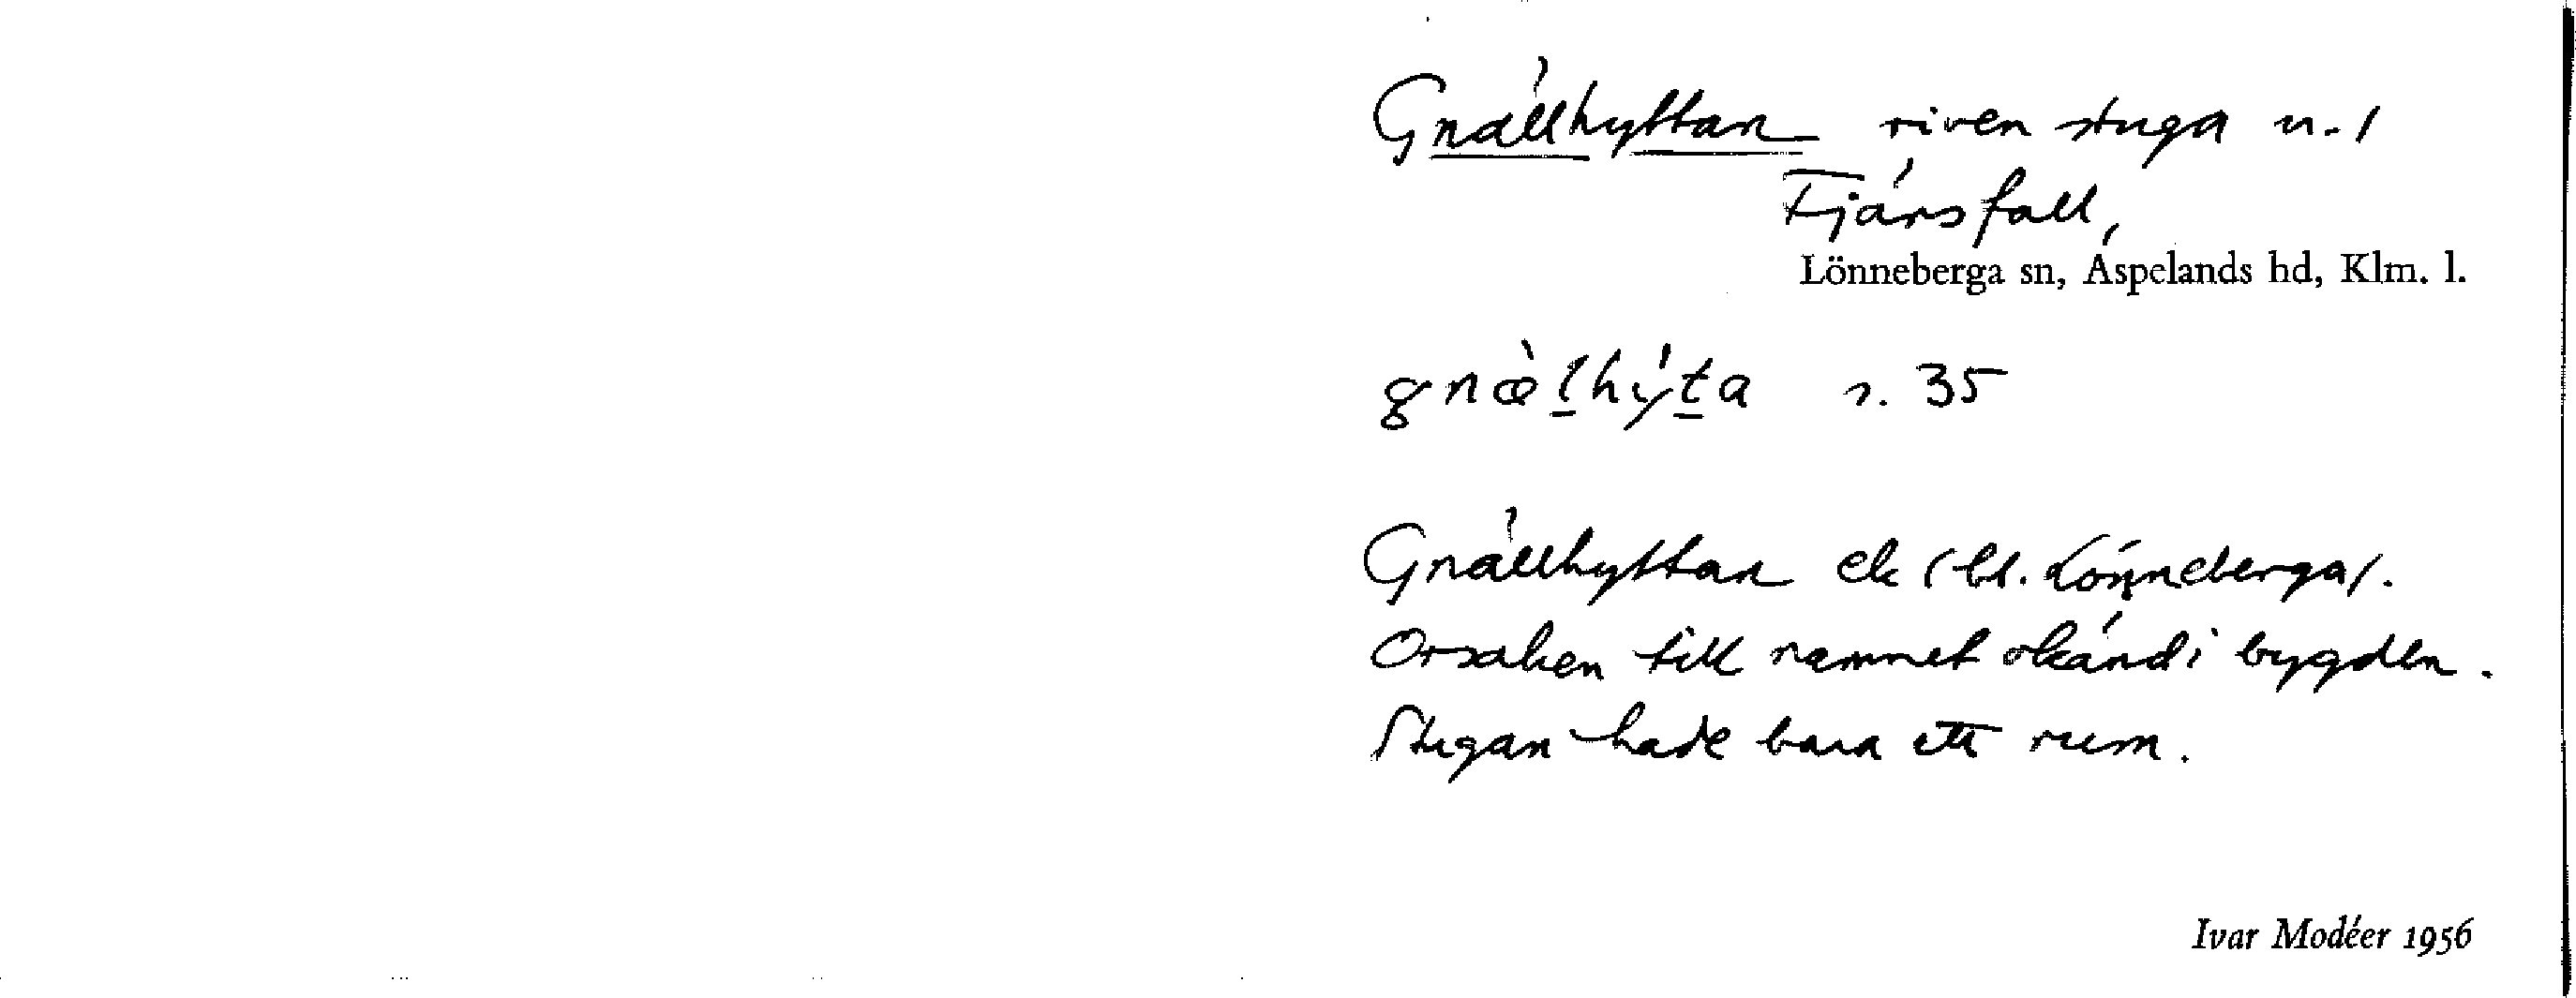 Gnällhyttan riven stuga u. /
Fjärsfall,
Lönneberga sn, Aspelands hd, Klm. l.
gnæ̀lhy̍ta s. 35
Gnällhyttan ek (bl. Lönneberga).
Orsaken till namnet okänd i bygden.
Stugan hade bara ett rum.
Ivar Modéer 1956